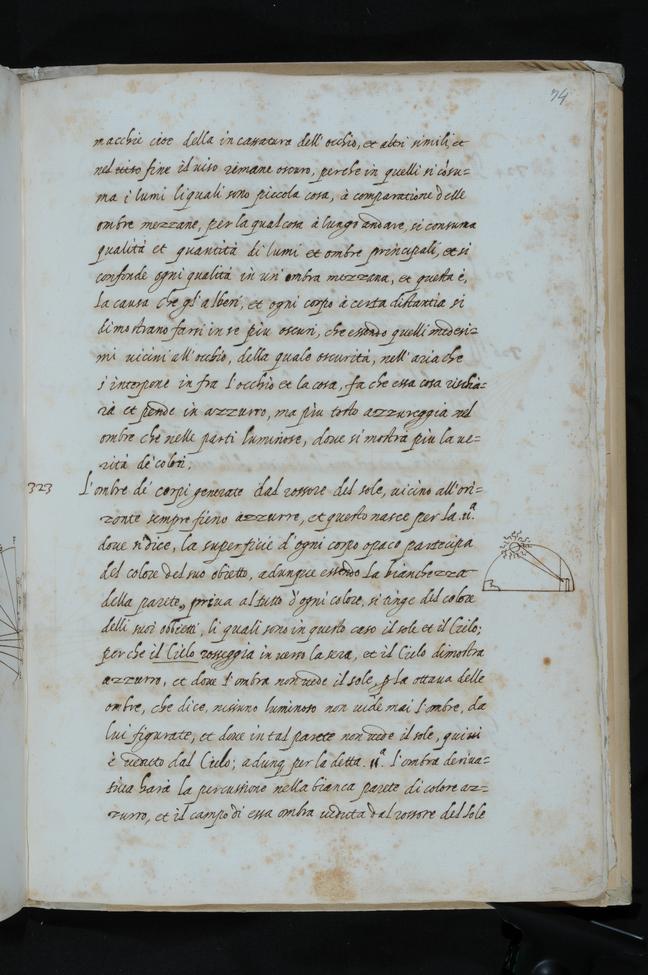 74
macchie cioe della in cassatura dell'occhio, et altri simili, et
nel fine il uiso rimane oscuro, perche in quelli si cōsu=
ma i lumi li quali sono piccola cosa, à comparatione delle
ombre mezzane, per la qual cosa à lungo andare, si consuma
qualità et quantità di lumi et ombre principali, et si
confonde ogni qualità in un' ombra mezzana, et questa è,
la causa che gl'alberi, et ogni corpo à certa distantia si
dimostrano farsi in se piu oscuri, che essendo quelli medesi=
mi uicini all'occhio, della quale oscurità, nell'aria che
s'interpone in fra l'occhio et la cosa, fa che essa cosa rischia=
ra et pende in azzurro, ma piu tosto azzureggia nel
ombre che nelle parti luminose, doue si mostra piu la ue=
rità de colori.
323 L'ombre de' corpi generate dal rossore del sole, uicino all'ori=
zonte sempre fieno azzurre, et questo nasce per la .11ª.
doue si dice, la superficie d'ogni corpo opaco partecipa
del colore del suo obietto, adunque essendo la bianchezza
della parete, priua al tutto d'ogni colore, si tinge del colore
delli suoi obbietti, li quali sono in questo caso il sole et il Cielo;
perche il Cielo rosseggia in uerso la sera, et il Cielo dimostra
azzurro, et doue l'ombra non uede il sole, p la ottaua delle
ombre, che dice, nissuno luminoso non uide mai l'ombre, da
lui figurate, et doue in tal parete non uede il sole, quiui
è ueduto dal Cielo; adunq per la detta .11ª. l'ombra deriua=
tiua harà la percussione nella bianca parete di colore az=
zurro, et il campo di essa ombra ueduta dal rossore del sole